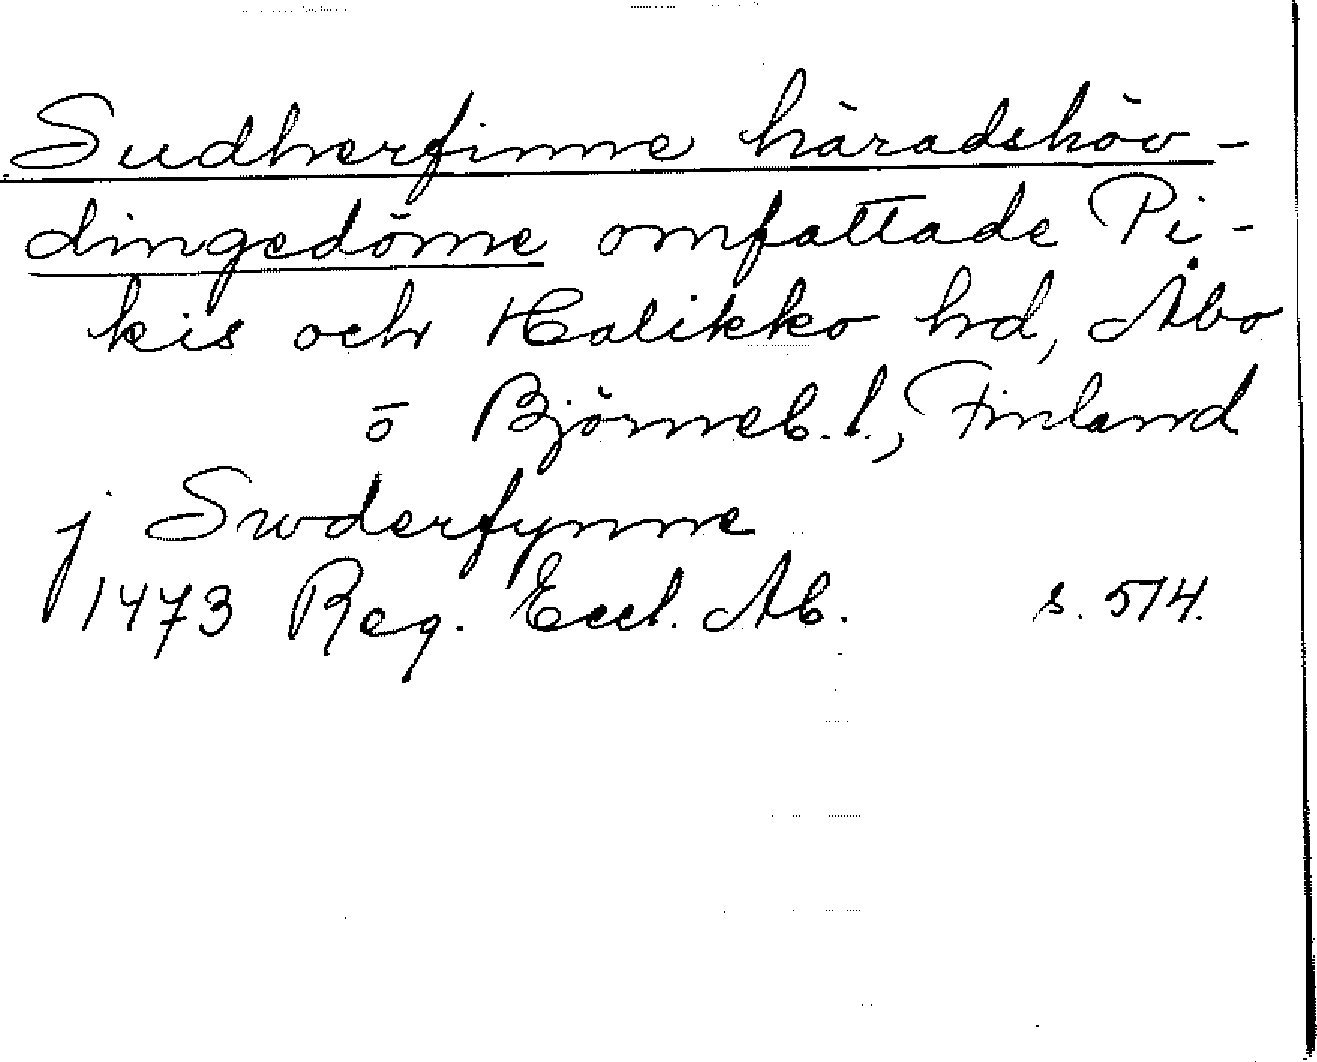 Sudherfinne häradshöv-
dingedöme omfattade Pi-
kis och Halikko hd, Åbo
o Björneb. l., Finland
j Swderfynne
1473 Reg. Eccl. Ab. s. 514.